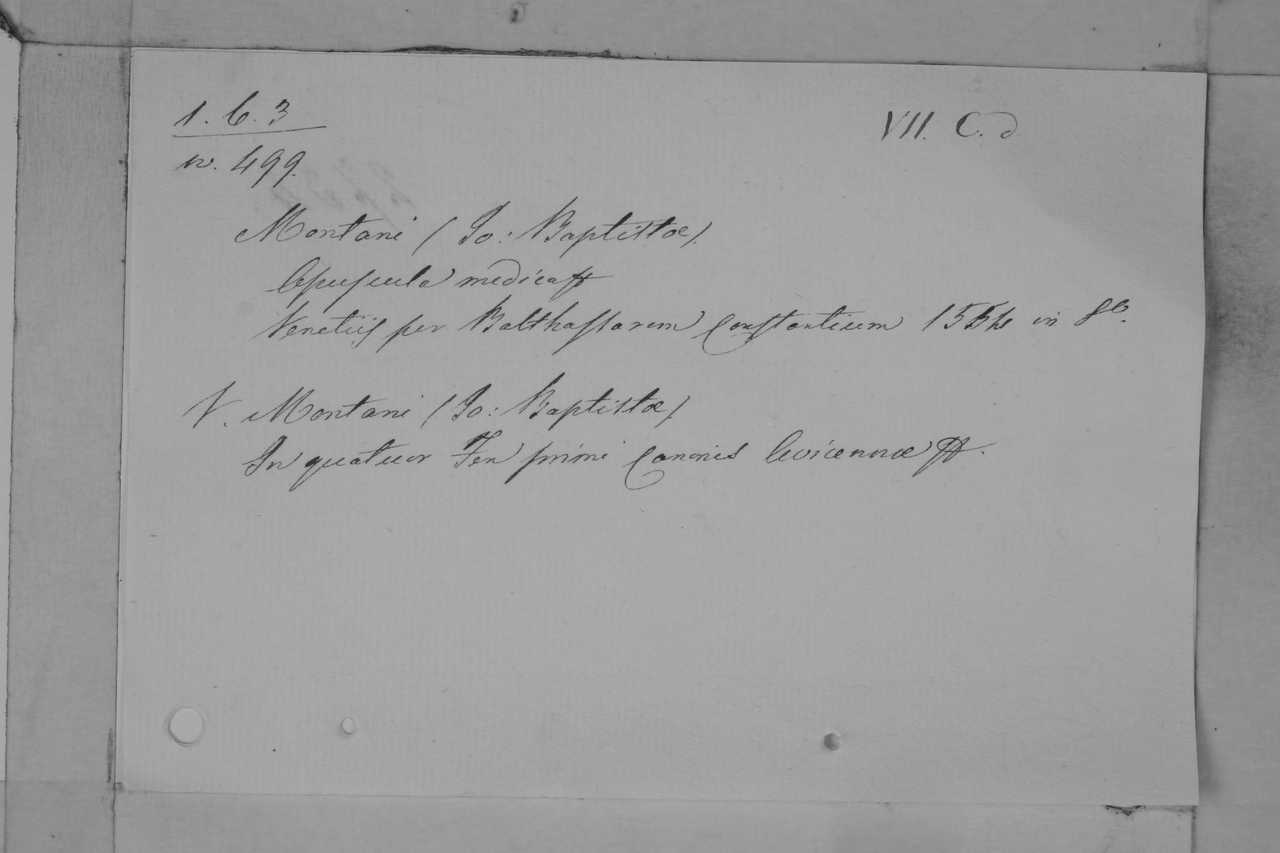 1. 6. 3
VII. C. d
n. 499.
Montani (Jo: Baptistæ).
Opuscula medica
Venetiis per Balthassarem Constantium 1554 in 8º.
V. Montani (Jo: Baptistæ)
In quatuor Fen primi Canonis Avicennæ